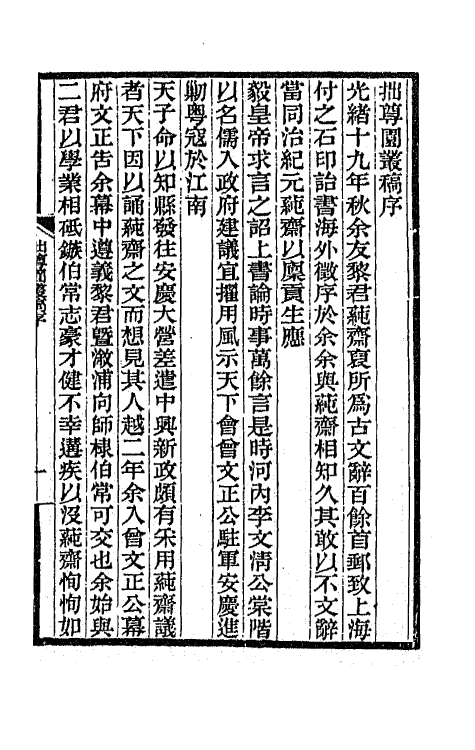 拙尊園叢稿序
光緒十九年秋余友黎君蒓齋裒所爲古文辭百餘首郵致上海
付之石印詒書海外徵序於余余與蒓齋相知久其敢以不文辭
當同治紀元蒓齋以廩貢生應
毅皇帝求言之詔上書論時事萬餘言是時河內李文淸公棠階
以名儒入政府建議宜擢用風示天下會曾文正公駐軍安慶進
勦粵寇於江南
天子命以知縣發往安慶大營差遣中興新政頗有采用蒓齋議
者天下因以誦蒓齋之文而想見其人越二年余入曾文正公幕
府文正告余幕中遵義黎君曁漵浦向師棣伯常可交也余始與
二君以學業相砥鏃伯常志豪才健不幸遘疾以沒蒓齋恂恂如
拙尊園叢稿序
一